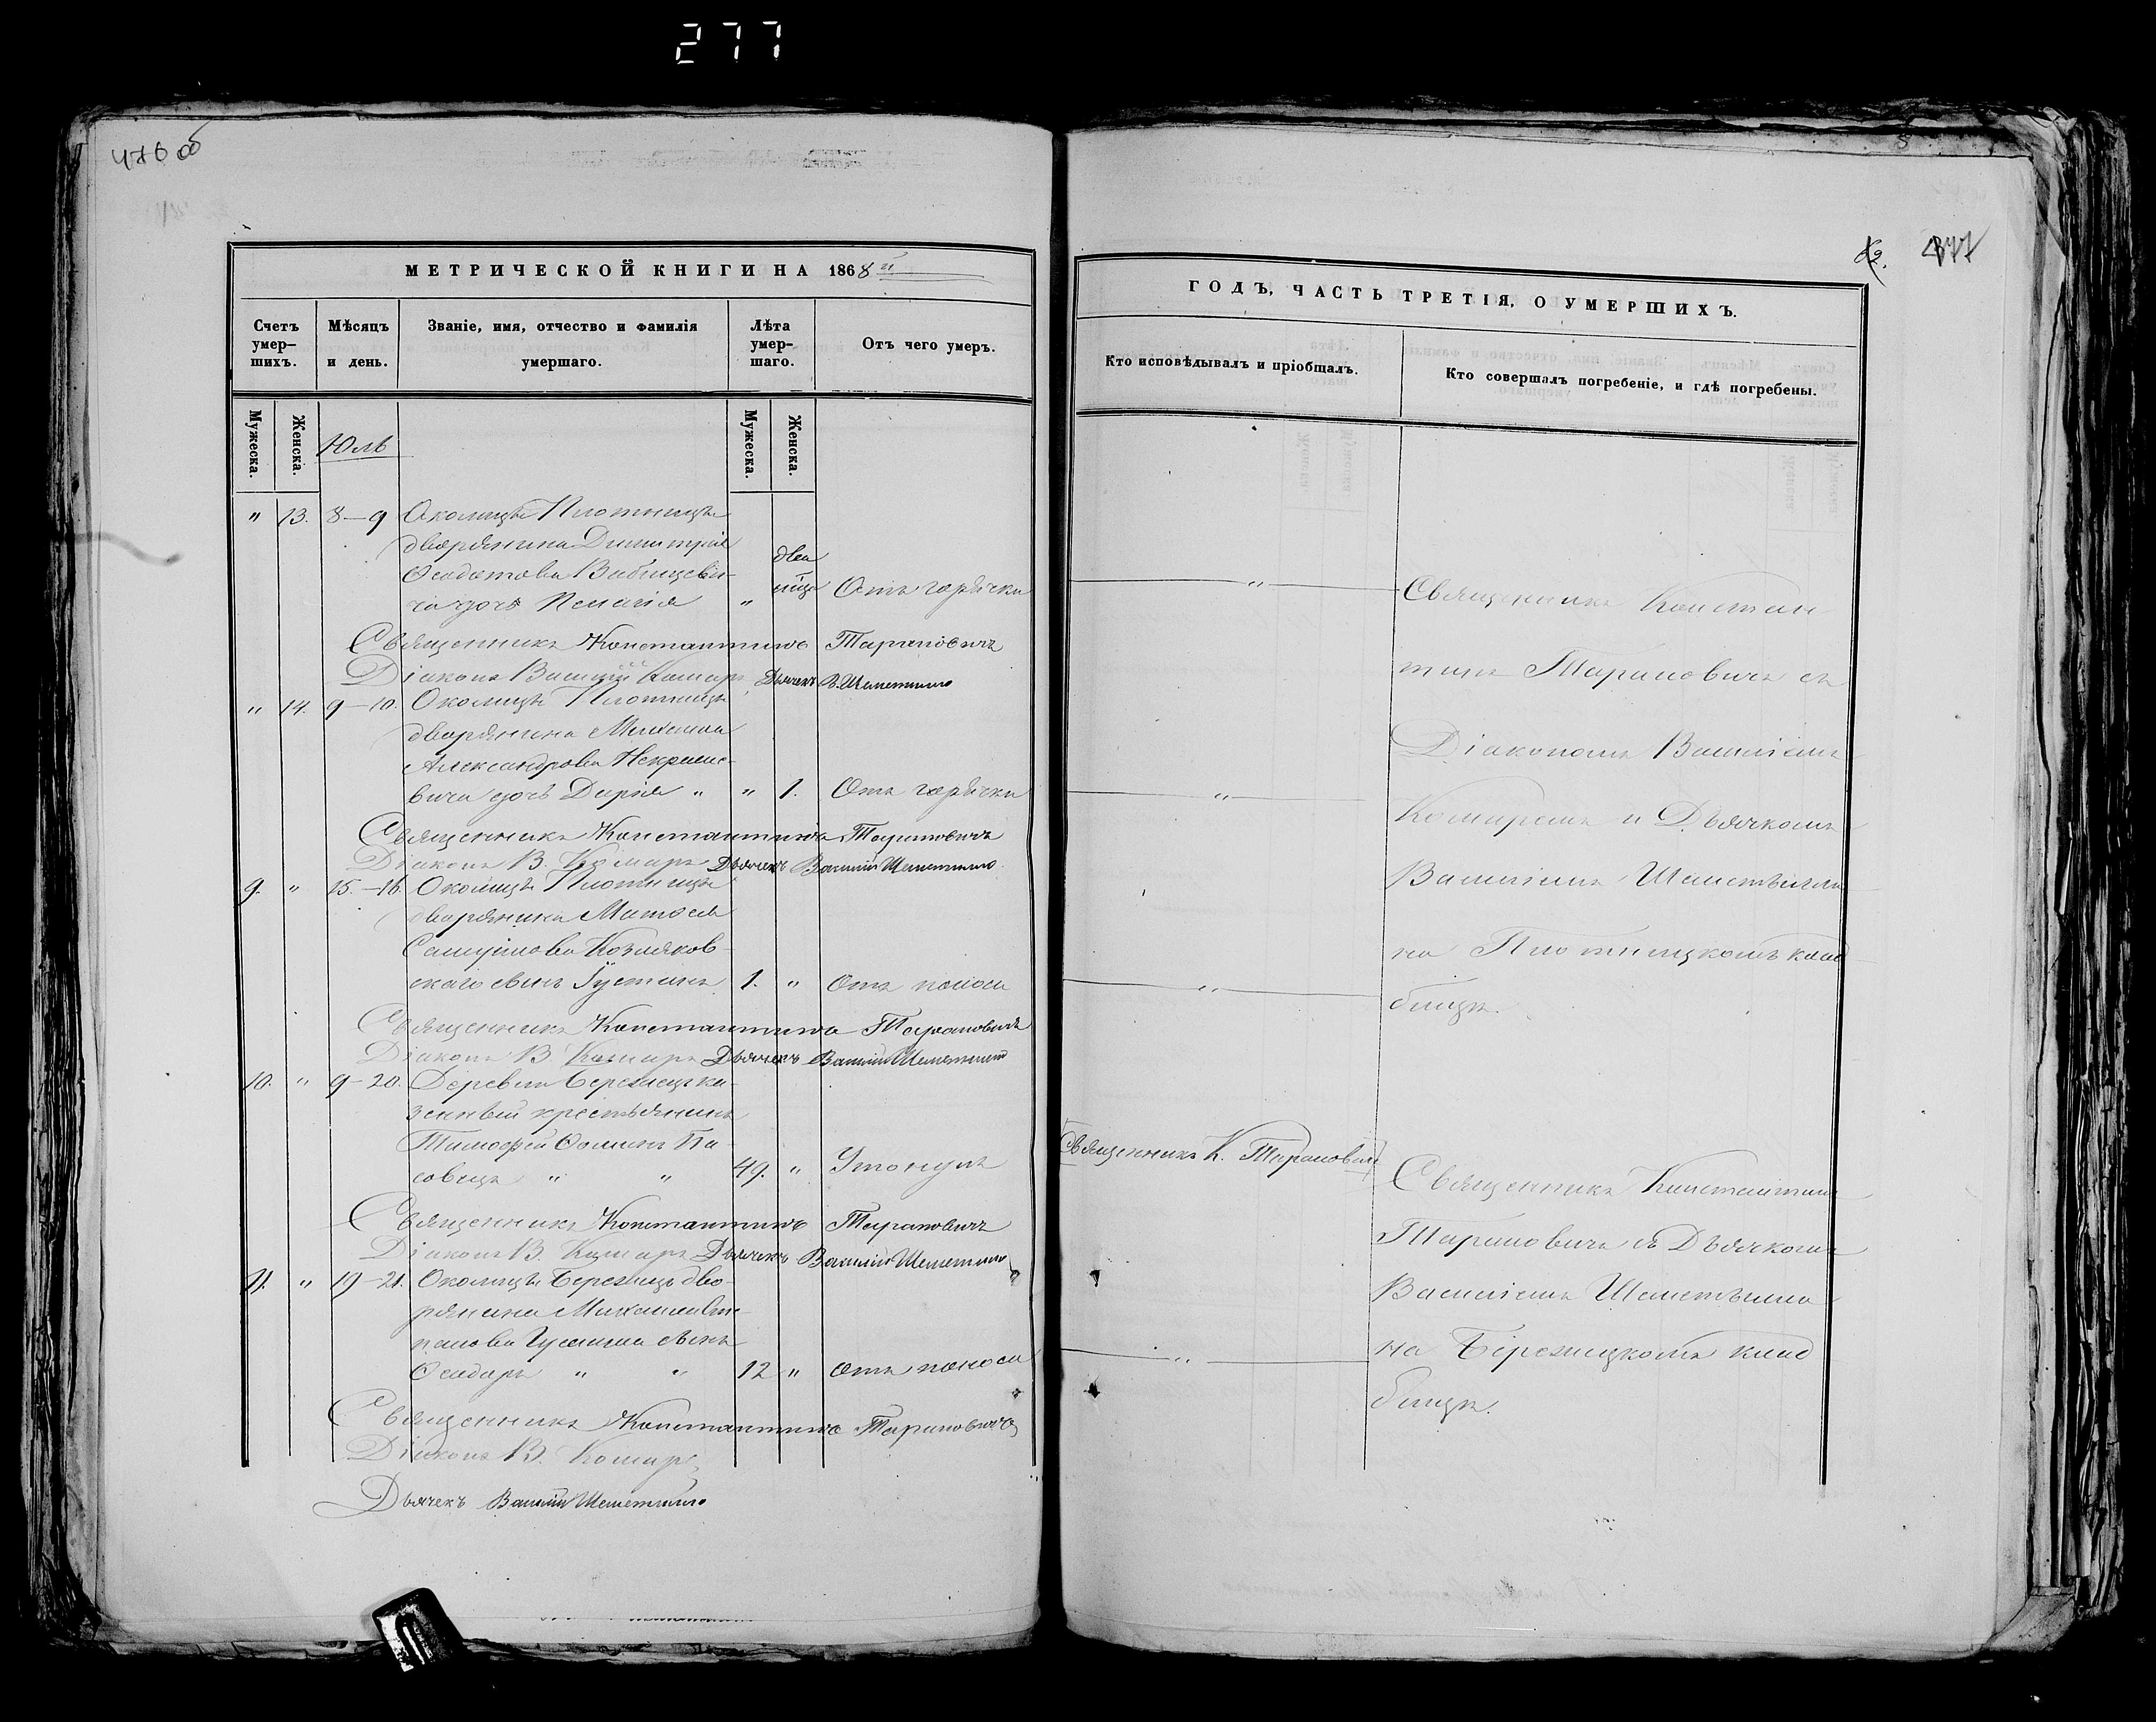 277
476 об
МЕТРИЧЕСКОЙ КНИГИ НА 1868 й
Счетъ умер-шихъ.
Мѣсяцъ и день.
Званіе, имя, отчество и фамилія умершаго.
Лѣта умер-шаго.
Отъ чего умеръ.
Мужеска.
Женска.
Мужеска.
Женска.
Юль
" 13. 8–9 Околицы Плотницы
дворянина Димитрія
Ѳеодотова
ча дочь Пелагія " Отъ горячки
Священникъ Константинъ Тарановичъ
Діаконъ Василій Комаръ Дьячекъ В. Шеметилло
" 14. 9–10. Околицы Плотницы
дворянина Михаила
Александрова Некраше-
вича дочь Дарія " " 1. Отъ горячки
Священникъ Константинъ Тарановичъ
Діаконъ В. Комаръ Дьячекъ Василій Шеметилло
9. " 15.–16. Околицы Плотницы
дворянина Матѳея
Самуйлова Козляков-
скаго сынъ Іустинъ 1. " Отъ поноса
Священникъ Константинъ Тарановичъ
Діаконъ В. Комаръ Дьячекъ Василій Шеметилло
10. " 9–20. Деревни Бережецъ ка-
зенный крестьянинъ
Тимофей Ѳоминъ Па-
совецъ " " 49. " Утонулъ
Священникъ Константинъ Тарановичъ
Діаконъ В. Комаръ Дьячекъ Василій Шеметилло
11. " 19–21. Околицы Бережецъ дво-
рянина Михаила Сте-
панова сынъ
" " 12 " Отъ поноса
Священникъ Константинъ Тарановичъ
Діаконъ В. Комаръ
Дьячекъ Василій Шеметилло
477
ГОДЪ, ЧАСТЬ ТРЕТІЯ, О УМЕРШИХЪ.
Кто исповѣдывалъ и пріобщалъ.
Кто совершалъ погребеніе, и гдѣ погребены.
"
Священникъ Констан
тинъ Тарановичъ съ
Діакономъ Василіемъ
"
Комаремъ и Дьячкомъ
Василіемъ Шеметилло
на Плотницкомъ клад
"
бищѣ.
Священникъ К. Тарановичъ
Священникъ Константинъ
Тарановичъ съ Дьячкомъ
Василіемъ Шеметилло
на Бережецкомъ клад
"
бищѣ.